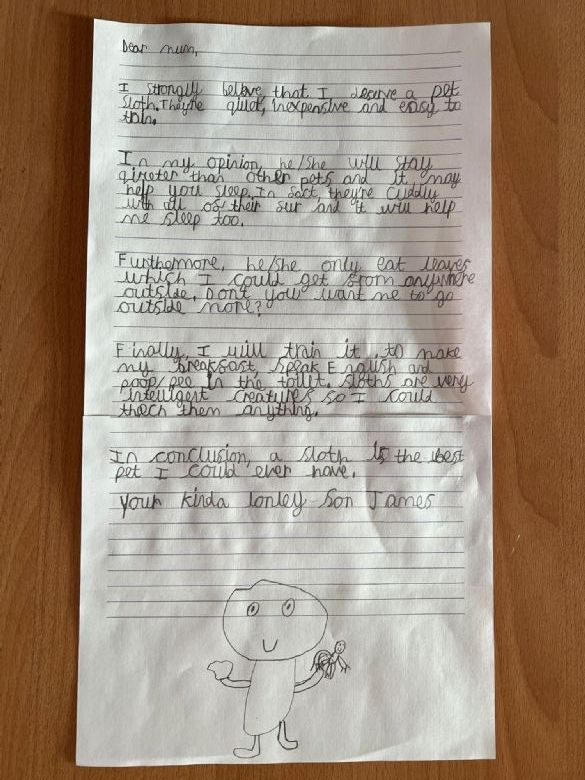 Dear mum,
I strongly believe that I deserve a pet
sloth. They're quiet, inexpensive and easy to
train.
In my opinion, he/she will stay
quieter than other pets and it may
help you sleep. In fact, they're cuddly
with all of their fur and it will help
me sleep too.
Furthermore, he/she only eat leaves
which I could get from anywhere
outside. Don't you want me to go
outside more?
Finally, I will train it to make
my breakfast, speak English and
poop/pee in the toilit. Sloths are very
intelligent creatures so I could
them anything.
In conclusion, a sloth is the best
pet I could ever have.
your kinda lonley son James